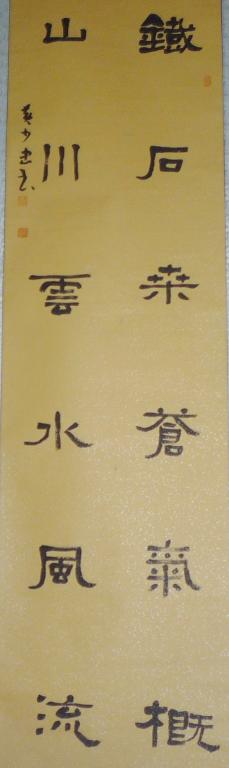 鐵石桒蒼氣概
山川雲水風流